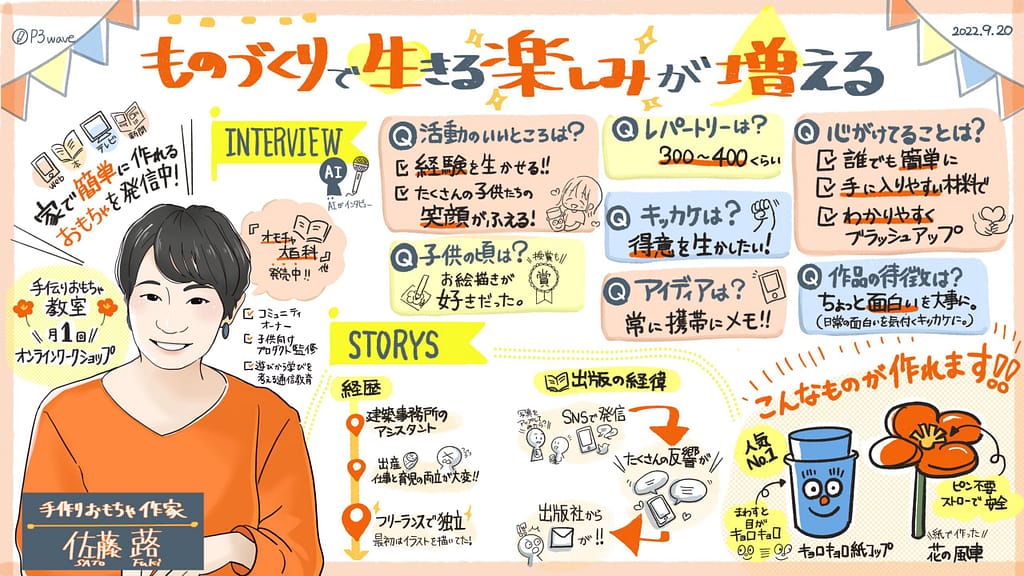 P3wave
2022.9.20
ものづくりで生きる楽しみが増える
web
本
テレビ
新聞
家で簡単に作れる
おもちゃを発信中!
オモチャ
大百科
他
発売中!!
手伝りおもちゃ
教室
月1回
オンラインワークショップ
コミュニティ
オーナー
子供向け
プロダクト監修
遊びから学びを
考える通信教育
手作りおもちゃ作家
佐藤 蕗
SATO Fuki
INTERVIEW
AI
AIがインタビュー
Q 活動のいいところは?
経験を生かせる!!
たくさんの子供たちの
笑顔がふえる!
Q 子供の頃は?
お絵描きが
好きだった。
授賞も!!
賞
Q レパートリーは?
300〜400くらい
Q キッカケは?
得意を生かしたい!
Q アイディアは?
常に携帯にメモ!!
Q 心がけてることは?
誰でも簡単に
手に入りやすい材料で
わかりやすく
ブラッシュアップ
Q 作品の特徴は?
ちょっと面白いを大事に。
(日常の面白いを気付くキッカケに。)
STORYS
経歴
建築事務所の
アシスタント
出産
仕事と育児の両立が大変!!
フリーランスで独立
最初はイラストを描いてた!
出版の経緯
SNSで発信
たくさんの反響が
出版社から
が!!
こんなものが作れます!!
人気
No.1
まわすと
目が
キョロキョロ
キョロキョロ紙コップ
ピン不要
ストローで安全
紙で作った!!
花の風車